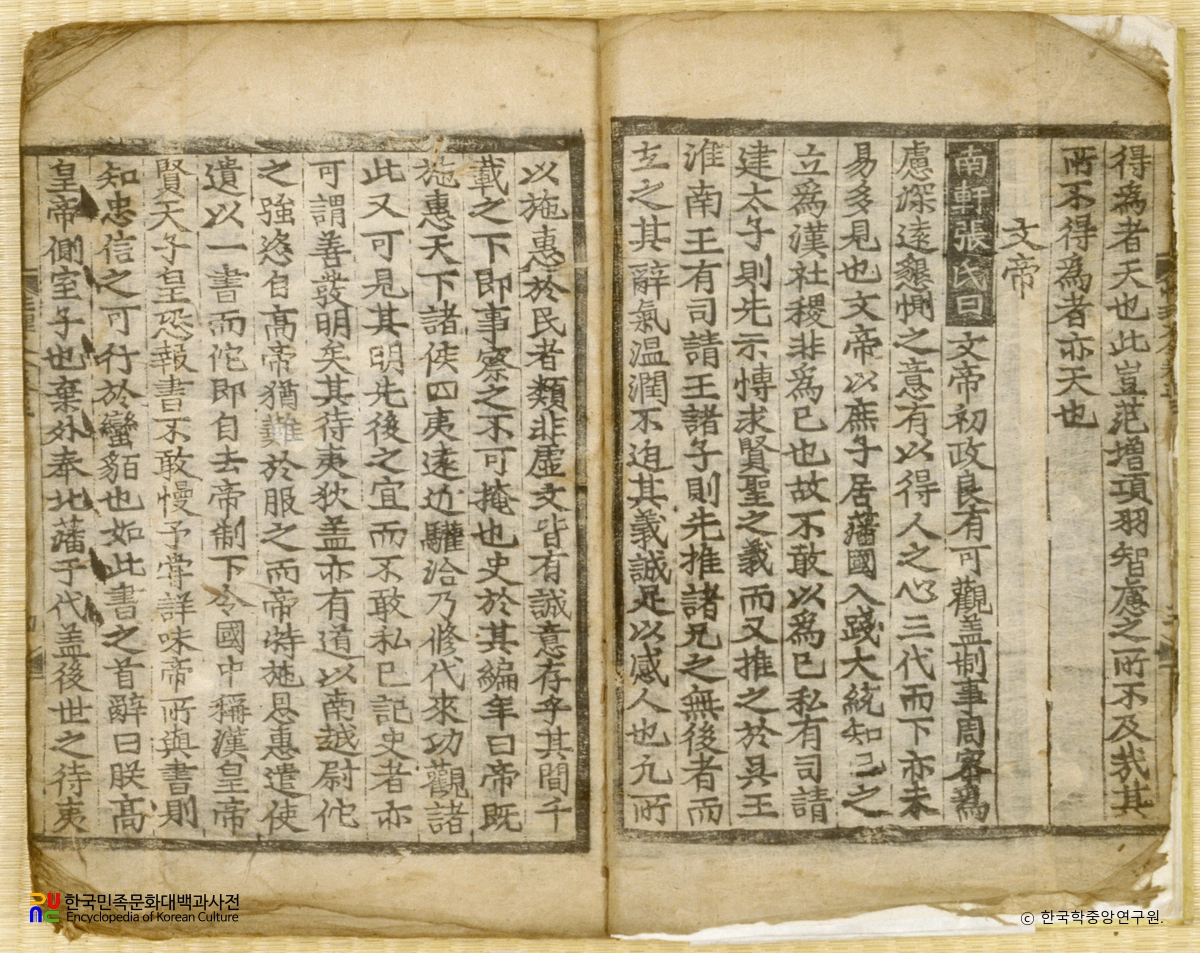 得爲者天也此豈范增項羽智慮之所不及哉其
所不得爲者亦天也
文帝
南軒張氏曰文帝初政良有可觀盖制事周密爲
慮深遠懇惻之意有以得人之心三代而下亦未
易多見也文帝以庶子居藩國入踐大統知己之
立爲漢社稷非爲己也故不敢以爲己私有司請
建太子則先示博求賢聖之義而又推之於吳王
淮南王有司請王諸子則先推諸兄之無後者而
立之其辭氣温潤不迫其義誠足以感人也凡所
以施惠於民者類非虛文皆有誠意存乎其間千
載之下即事察之不可掩也史於其編年曰帝既
施惠天下諸侯四夷遠近驩洽乃修代來功觀諸
此又可見其明先後之宜而不敢私己記史者亦
可謂善發明矣其待夷狄盖亦有道以南越尉佗
之強恣自高帝猶難於服之而帝特施恩惠遣使
遺以一書而佗即自去帝制下令國中稱漢皇帝
賢天子皇恐報書不敢慢予嘗詳味帝所與書則
知忠信之可行於蠻貊也如此書之首辭曰朕高
皇帝側室子也棄外奉北藩于代盖後世之待夷
한국민족문화대백과사전
Encyclopedia of Korean Culture
© 한국학중앙연구원.